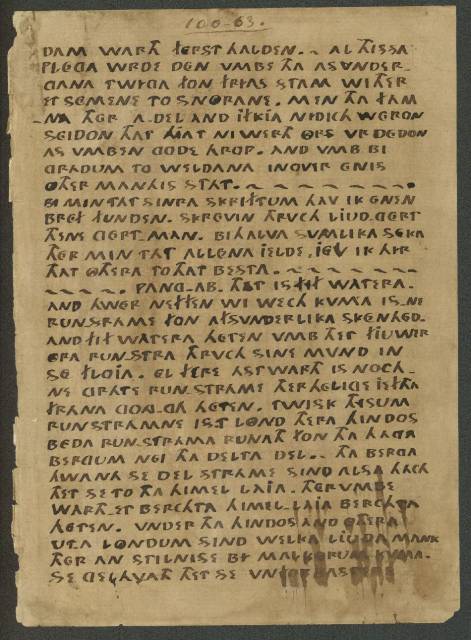 DAM WARTH FERST HALDEN. ~ AL THISSA
PLEGA WRDE DEN VMBE THA ASVNDER-
GANA TWIGA FON FRIAS STAM WITHER
ET SEMENE TO SNORANE. MEN THA FAM-
NA THER A-DEL AND NIDICH WERON
SEIDON THAT HIAT NI WERTH DEDON
AS VMBEN GODE HROP. AND VMB BI
GRADUM TO WELDANA IN OVIR ENIS
OTHER MANNIS STAT. ~ ~ ~ ~ ~
BI MIN TAT SINRA SKRIFTUM HAV IK ENEN
BREF FUNDEN. SKREVIN THRVCH LIUD-GERT
THENE GERT-MAN. BIHALVA SUMLIKA SEKA
THER MIN TAT ALLENA IELDE. IEV IK HIR
THAT OTHERA TO THAT BESTA. ~ ~ ~ ~ ~
~ ~ ~ ~. PANG-AB. THET IS FIF WATERA.
AND HWER NEFFEN WI WECH KVMA IS-NE
RUN.STRAME FON AFSVNDERLIKA SKENHED.
AND FIF WATERA HETEN VMB THET FIUWER
ORA RUN.STRA THRVCH SINE MUND IN
SE FLOIA. EL FERE ASTWARD IS NOCH-
NE GRATE RUN.STRAME THER HELIGE IEFTHA
FRANA GONG-GA HETEN. TWISK THISUM
RUN.STRAMNE IST LOND THERA HINDOS
BEDA RUN.STRAMA RUNATH FON THA HAGA
BERGUM NEI THA DELTA DEL. ~ THA BERGA
HWANA SE DEL STRAME SIND ALSA HACH
THET SE TO THA HIMEL LAIA. THERVMBE
WARTH-ET BERCHTA HIMEL-LAIA BERCHTA
HETEN. VNDER THA HINDOS AND OTHERA
UTA LONDUM SIND WELKA LIUDA MANK
THER AN STILNISE BI MALKORUM KVMA.
SE GELAVATH THET SE